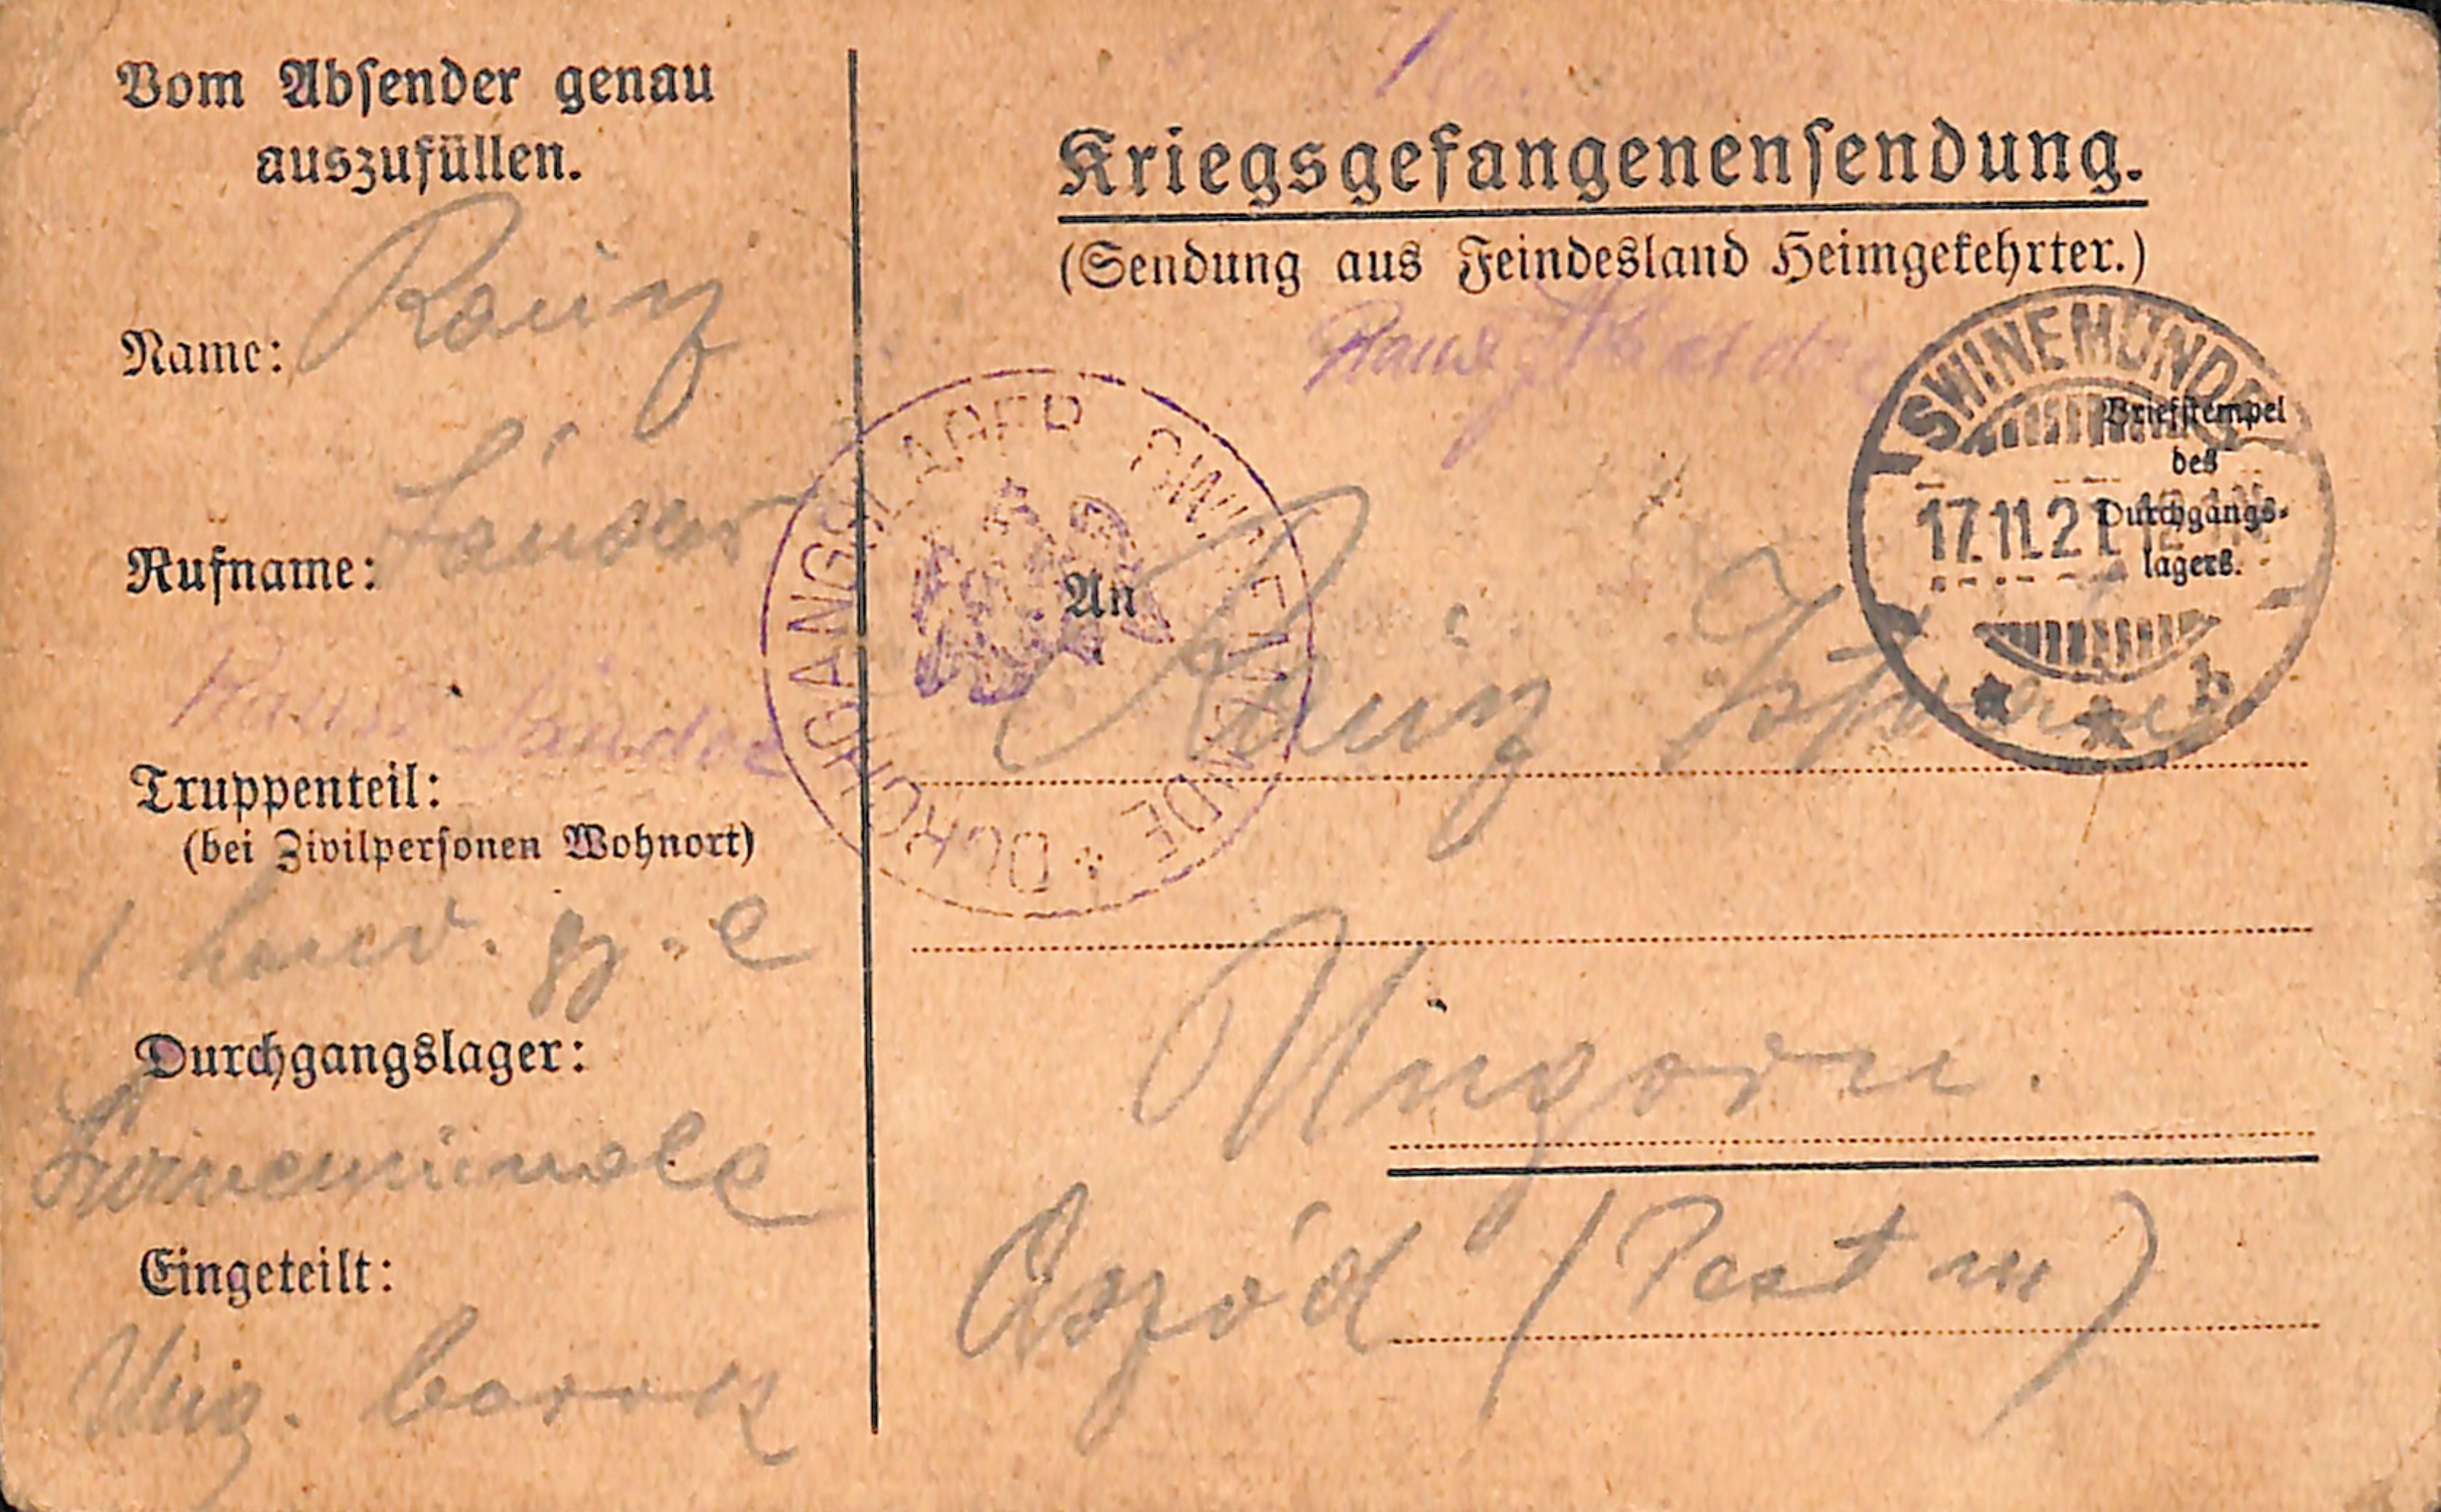 Vom Absender genau
auszufüllen.
Name:
Rufname: Sándor
Truppenteil:
(bei Zivilpersonen Wohnort)
1 honv. gy. e
Durchgangslager:
Swinemünde
Eingeteilt:
Ung. barak
Kriegsgefangenensendung.
(Sendung aus Feindesland Heimgekehrter.)
DURCHGANGSLAGER SWINEMÜNDE
SWINEMÜNDE
17.11.21
b
Briefstempel
des
Durchgangs-
lagers.
An
Ungarn.
Aszód (Pest m)